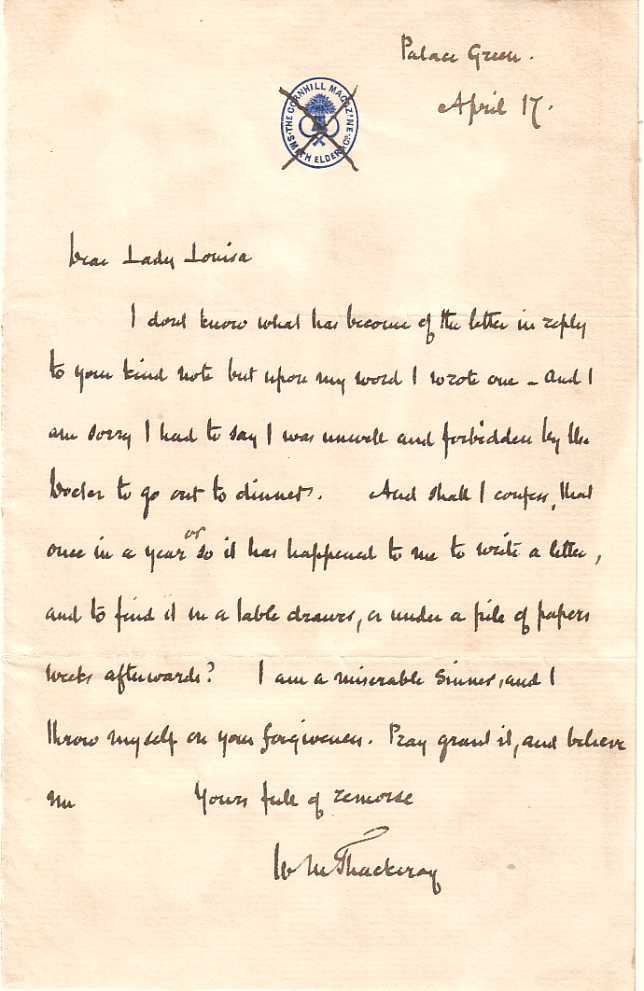 Palace Green.
April 17.
THE CORNHILL MAGAZINE
SMITH ELDER & Co.
Dear Lady Louisa
I dont know what has become of the letter in reply
to your kind note but upon my word I wrote one - and I
am sorry I had to say I was unwell and forbidden by the
Doctor to go out to dinners. And shall I confess, that
once in a year or so it has happened to me to write a letter,
and to find it in a table drawer, or under a pile of papers
weeks afterwards? I am a miserable sinner, and I
throw myself on your forgiveness. Pray grant it, and believe
me Yours full of remorse
W M Thackeray